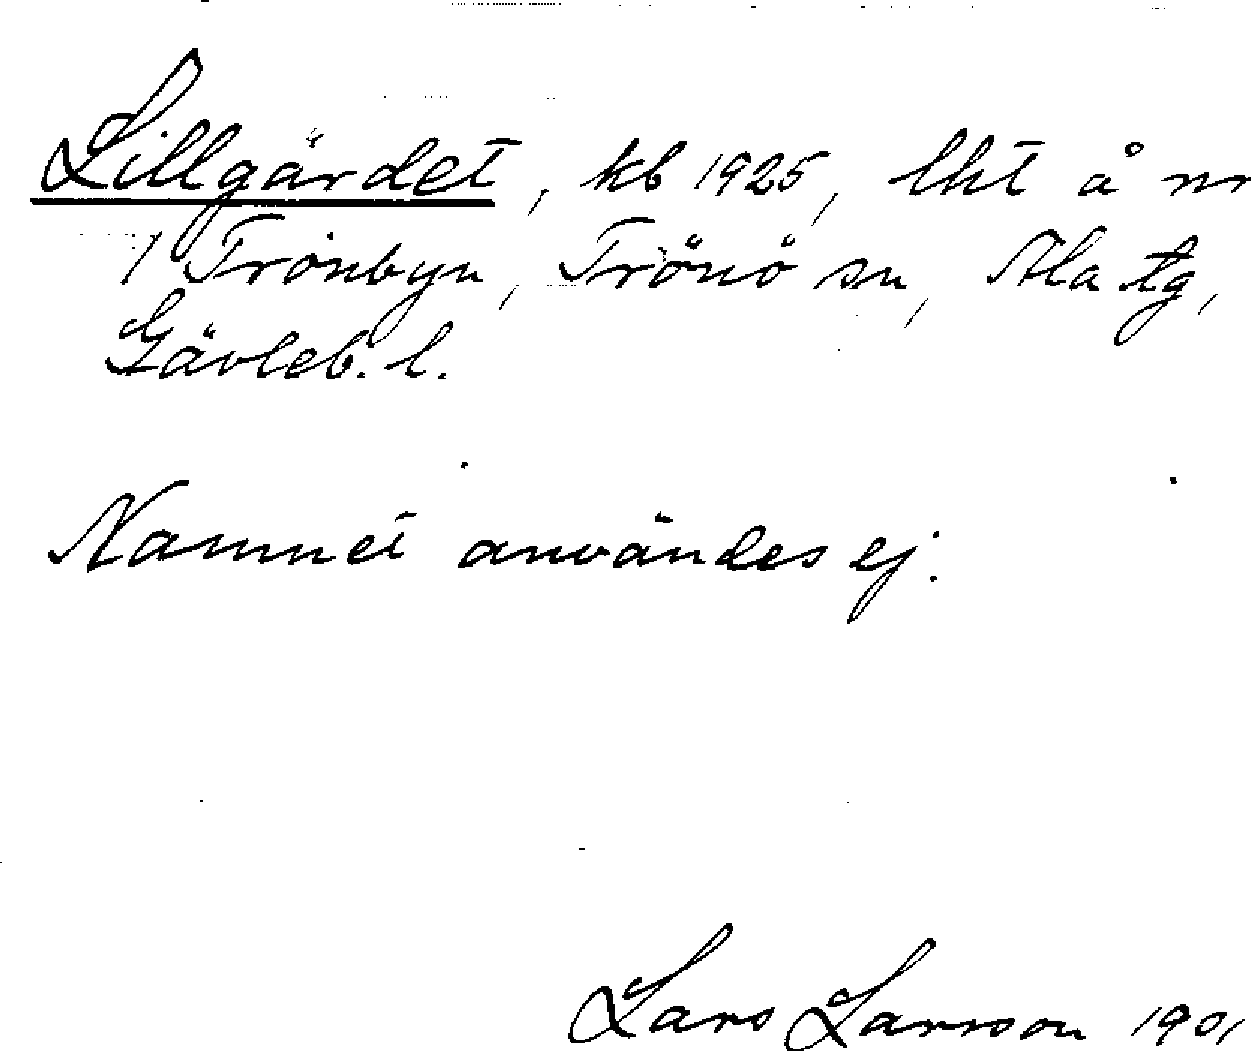 Lillgärdet, kb 1925, lht å nr
1 Trönbyn, Trönö sn, Ala tg,
Gävleb. l.
Namnet användes ej.
Lars Larsson 1901